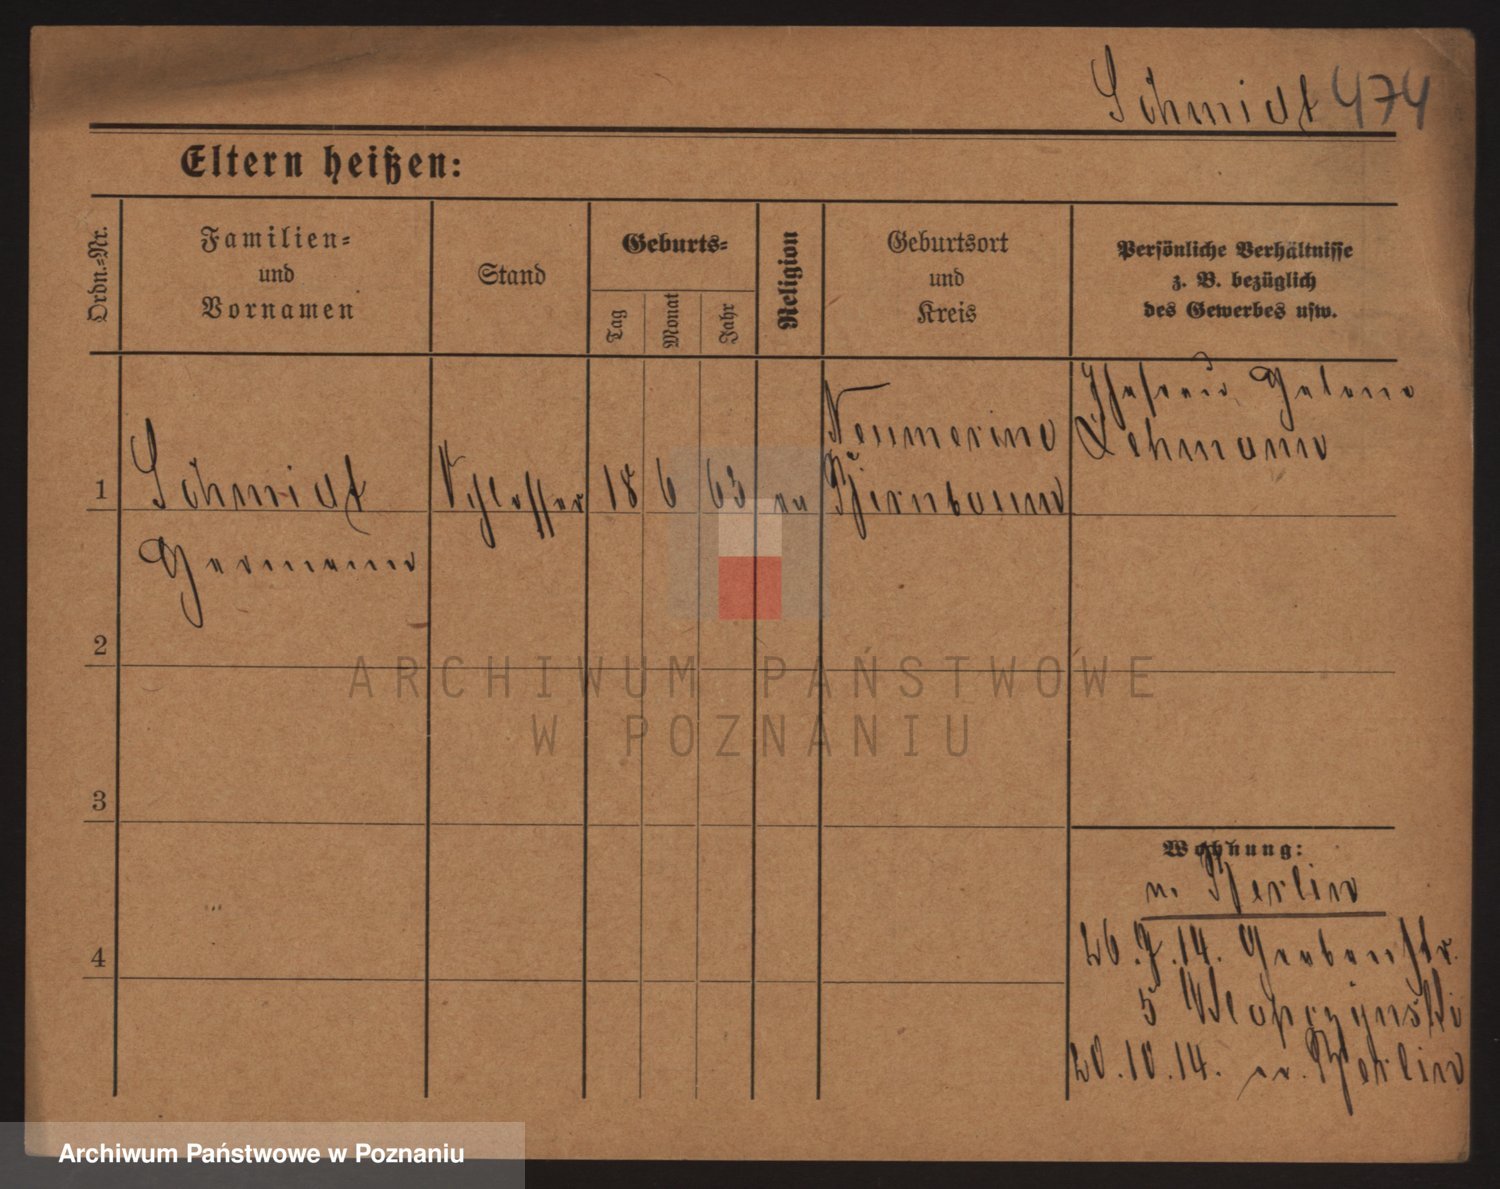 Schmidt 474
Eltern heißen:
Ordn.=Nr.
Familien=
und
Vornamen
Stand
Geburts=
Tag
Monat
Jahr
Religion
Geburtsort
und
Kreis
Persönliche Verhältnisse
z. B. bezüglich
des Gewerbes usw.
1
Schmidt
Hermann
Schlosser
18
6
63
ev
Neumerine
Birnbaum
Ehefrau Helene
Lehmann
2
3
4
Wohnung:
n. Berlin
26.7.14. Grabenstr.
5
20.10.14. n. Berlin
ARCHIWUM PAŃSTWOWE
W POZNANIU
Archiwum Państwowe w Poznaniu